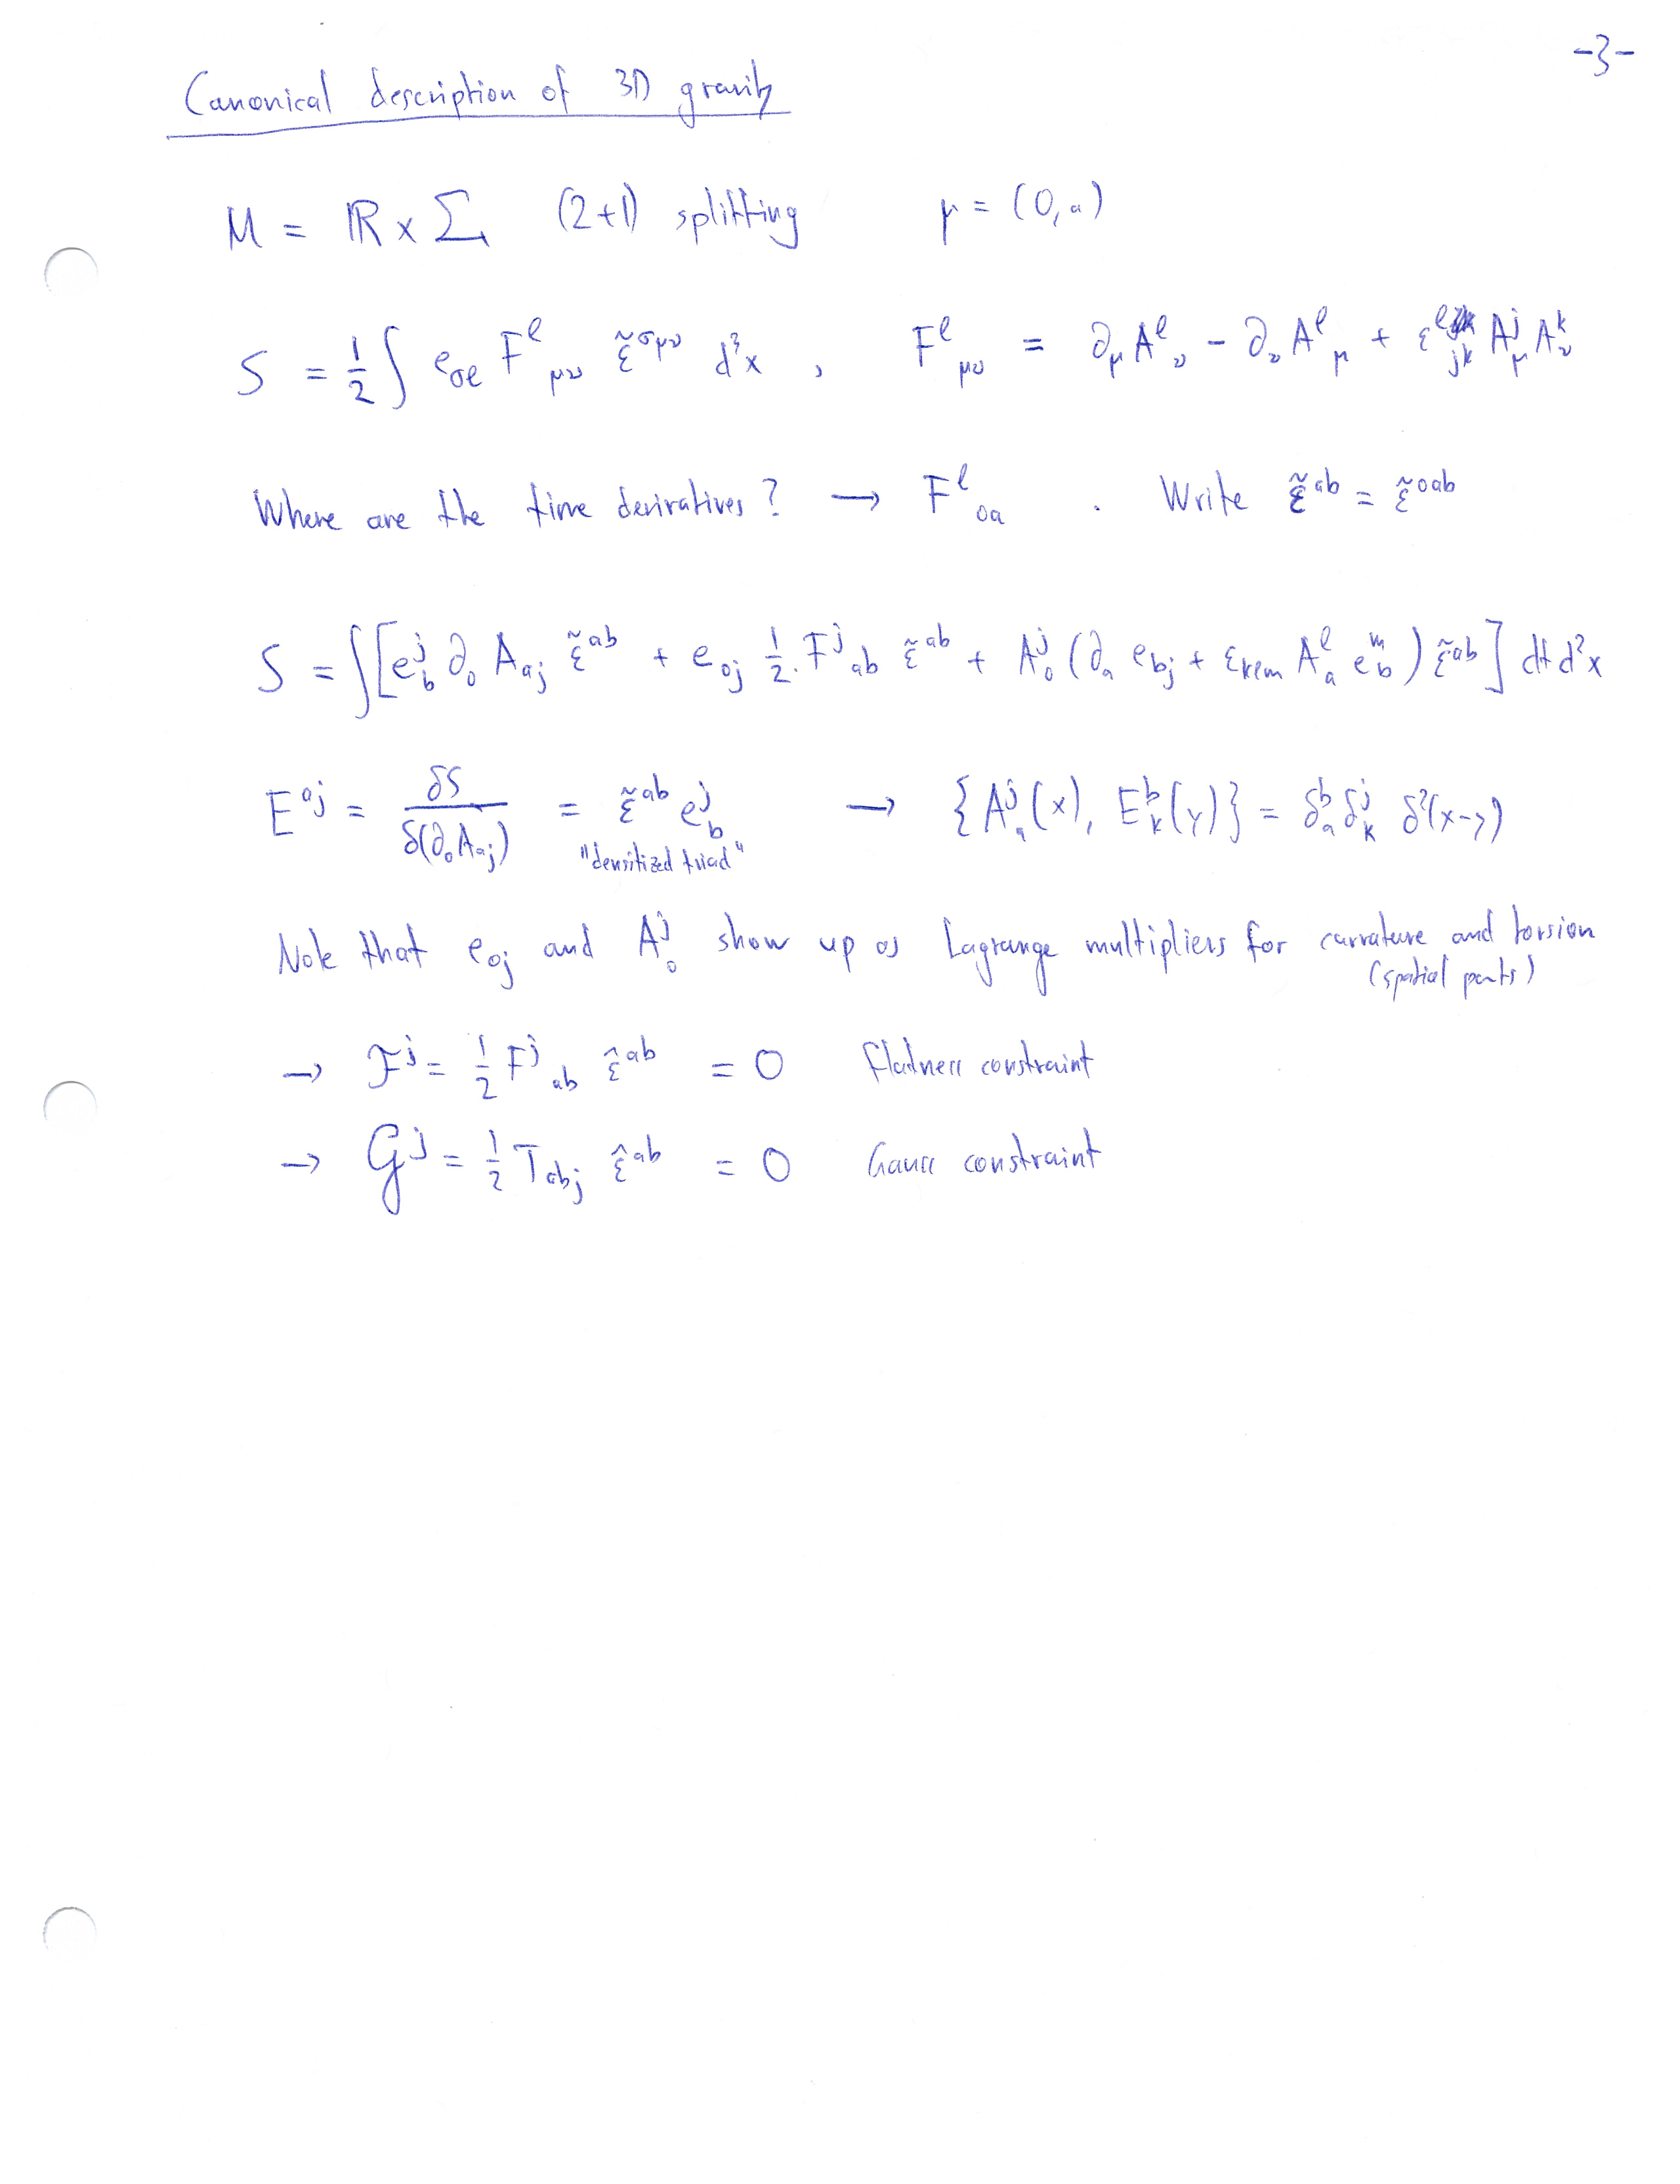 -3-
Canonical description of 3D gravity
M = ℝ × Σ (2+1) splitting μ = (0, a)
S = 1/2 ∫ e_{σℓ} F^ℓ_{μν} ε̃^{σμν} d³x , F^ℓ_{μν} = ∂_μ A^ℓ_ν - ∂_ν A^ℓ_μ + ε^ℓ_{jk} A^j_μ A^k_ν
Where are the time derivatives? → F^ℓ_{0a} . Write ε̃^{ab} = ε̃^{0ab}
S = ∫ [ e^j_b ∂_0 A_{aj} ε̃^{ab} + e_{0j} 1/2 F^j_{ab} ε̃^{ab} + A^j_0 ( ∂_a e_{bj} + ε_{kℓm} A^ℓ_a e^m_b ) ε̃^{ab} ] dt d²x
E^{aj} = δS / δ(∂_0 A_{aj}) = ε̃^{ab} e^j_b → { A^j_a(x), E^b_k(y) } = δ^b_a δ^j_k δ²(x-y)
"densitized triad"
Note that e_{0j} and A^j_0 show up as Lagrange multipliers for curvature and torsion
(spatial parts)
→ ℱ^j = 1/2 F^j_{ab} ε̂^{ab} = 0 flatness constraint
→ 𝒢^j = 1/2 T_{abj} ε̂^{ab} = 0 Gauss constraint